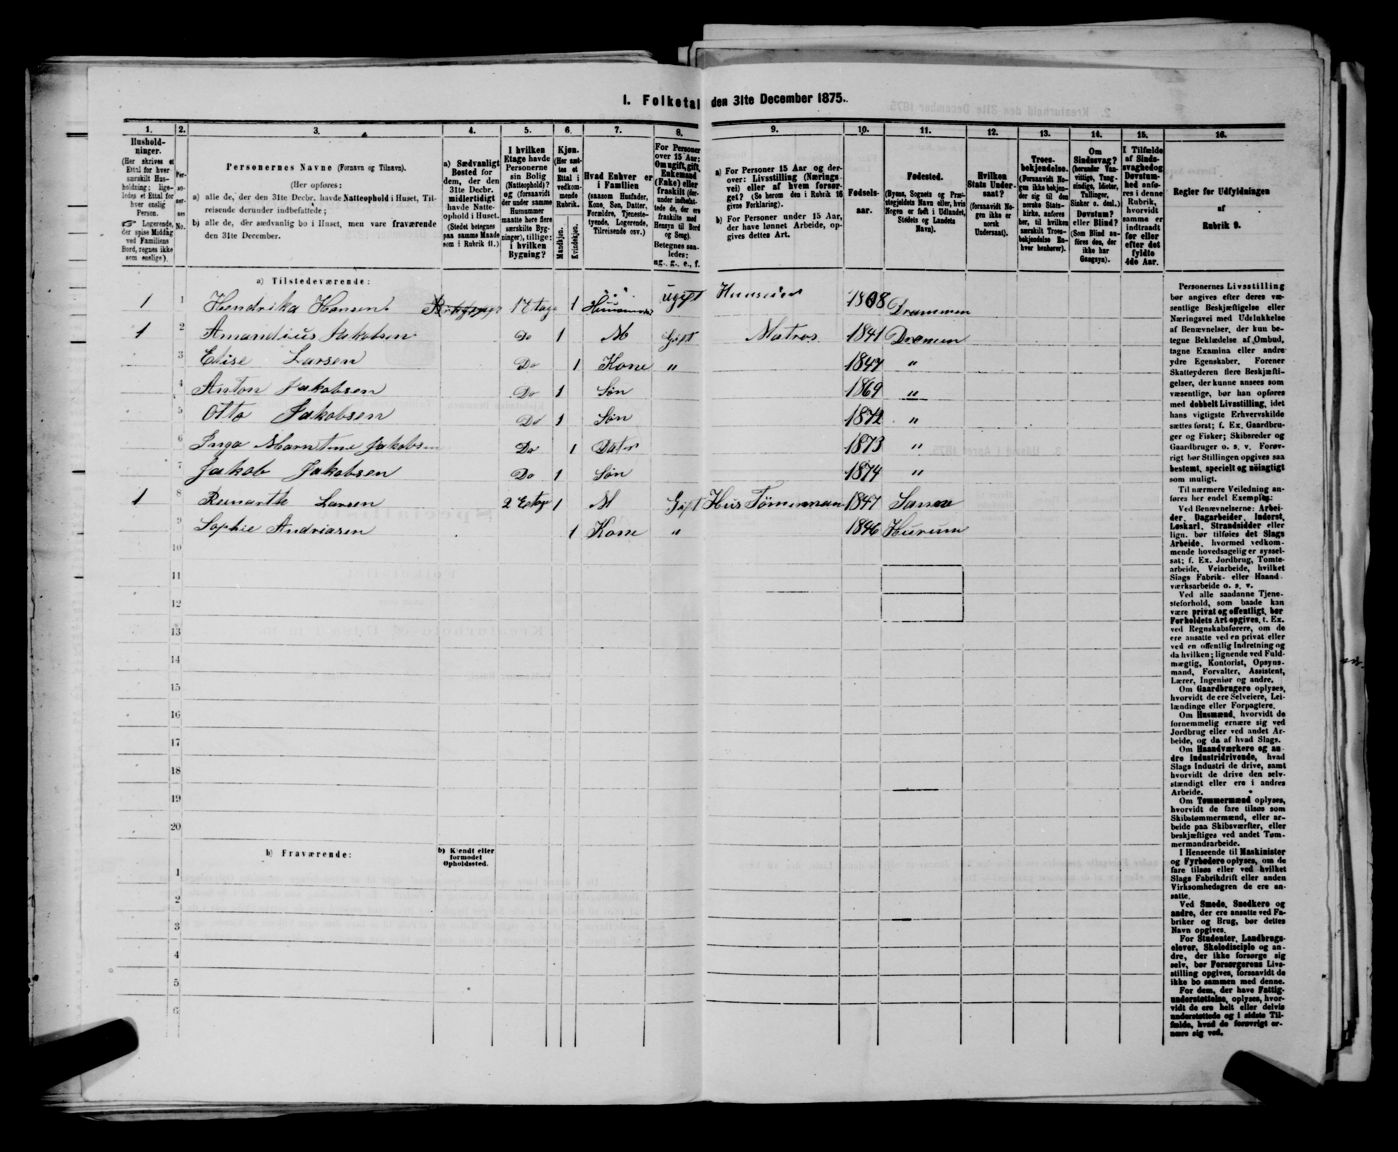 I. Folketal den 31te December 1875.
1. 2. 3. 4. 5. 6. 7. 8. 9. 10. 11. 12. 13. 14. 15. 16.
Husholdninger.
(Her skrives et Ettal for hver særskilt Husholdning; ligeledes et Ettal for hver enslig Person.
☞ Logerende, der spise Middag ved Familiens Bord, regnes ikke som enslige).
Personernes No.
Personernes Navne (Fornavn og Tilnavn).
(Her opføres:
a) alle, de, der den 31te Decbr. havde Natteophold i Huset, Tilreisende derunder indbefattede;
b) alle, de, der sædvanlig bo i Huset, men vare fraværende den 31te December.
a) Sædvanligt Bosted for dem, der den 31te Decbr. midlertidigt havde Natteophold i Huset.
(Stedet betegnes paa samme Maade som i Rubrik 11.)
I hvilken Etage havde Personerne sin Bolig (Natteophold)? og (forsaavidt der under samme Husnummer maatte høre flere særskilte Bygninger), tillige: i hvilken Bygning?
Kjøn.
(Her sættes et Ettal i vedkommende Rubrik.
Mandkjøn.
Kvindekjøn.
Hvad Enhver er i Familien
(saasom Husfader, Kone, Søn, Datter, Forældre, Tjenestetyende, Logerende, Tilreisende osv.)
For Personer over 15 Aar: Om ugift, gift, Enkemand (Enke) eller fraskilt (derunder indbefattede de, der ere fraskilte med Hensyn til Bord og Seng)
Betegnes saaledes: ug., g., e., f.
a) For Personer 15 Aar og derover: Livsstilling (Næringsvei) eller af hvem forsørget? (Se herom den i Rubrik 16 givne Forklaring).
b) For Personer under 15 Aar, der have lønnet Arbeide, opgives dettes Art.
Fødselsaar.
Fødested.
(Byens, Sognets og Præstegjeldets Navn eller, hvis Nogen er født i Udlandet, Stedets og Landets Navn).
Hvilken Stats Undersaat?
(forsaavidt Nogen ikke er norsk Undersaat).
Troesbekjendelse.
(Forsaavidt Nogen ikke bekjender sig til den norske Statskirke, anføres her, til hvilket særskilt Troesbekjendelse Enhver henhører).
Om Sindssvag? (herunder Vanvittige, Tungsindige, Idioter, Tullinger, Sinker o. desl.).
Døvstum? eller Blind? (Som Blind anføres den, der ikke har Gangsyn).
I Tilfælde af Sindssvaghed og Døvstumhed anføres i denne Rubrik, hvorvidt samme er indtraadt før eller efter det fyldte 4de Aar.
Regler for Udfyldningen af Rubrik 9.
a) Tilstedeværende:
1 1 Hendrika Hansen 1 Etage 1 ugift 1808 Drammen
1 Amandius Jakobsen Do 1 M Gift Matros 1841 Drammen
3 Elise Larsen Do 1 Kone „ 1847 „
4 Anton Jakobsen Do 1 Søn 1869 „
5 Otto Jakobsen Do 1 Søn 1872 „
6 Inga Jakobsen Do 1 Dater 1873 „
Jakob Jakobsen Do 1 Søn 1874 „
1 8 Larsen 2 Etage 1 M Gift Hus Tømmerman 1847
9 Sophie Andriasen 1 Kone „ 1846 Hurum
10
11
12
13
14
15
16
17
18
19
20
b) Fraværende:
b) Kjendt eller formodet Opholdssted.
1
2
3
4
5
6
Personernes Livsstilling bør angives efter deres væsentlige Beskjæftigelse eller Næringsvei med Udelukkelse af Benævnelser, der kun betegne Beklædelse af Ombud, tagne Examina eller andre ydre Egenskaber. Forener Skatteyderen flere Beskjæftigelser, der kunne ansees som væsentlige, bør han opføres med dobbelt Livsstilling, idet hans vigtigste Erhvervskilde sættes først; f. Ex. Gaardbruger og Fisker; Skibsreder og Gaardbruger o. s. v. Forøvrigt bør Stillingen opgives saa bestemt, specielt og nøiagtigt som muligt.
Til nærmere Veiledning anføres her endel Exempler:
Ved Benævnelserne: Arbeider, Dagarbeider, Inderst, Løskarl, Strandsidder eller lign. bør tilføies det Slags Arbeide, hvormed vedkommende hovedsagelig er sysselsat; f. Ex. Jordbrug, Tomtearbeide, Veiarbeide, hvilket Slags Fabrik- eller Haandværksarbeide o. s. v.
Ved alle saadanne Tjenesteforhold, som baade kan være privat og offentligt, bør Forholdets Art opgives, f. Ex. ved Regnskabsførere, om de ere ansatte ved en privat eller ved en offentlig Indretning og da hvilken; lignende ved Fuldmægtig, Kontorist, Opsynsmand, Forvalter, Assistent, Lærer, Ingeniør og andre.
Om Gaardbrugere oplyses, hvorvidt de ere Selveiere, Leilændinge eller Forpagtere.
Om Husmænd, hvorvidt de fornemmelig ernære sig ved Jordbrug eller ved andet Arbeide, og da af hvad Slags.
Om Haandværkere og andre Industridrivende, hvad Slags Industri de drive, samt hvorvidt de drive den selvstændigt eller ere i andres Arbeide.
Om Tømmermænd oplyses, hvorvidt de fare tilsøs som Skibstømmermænd, eller arbeide paa Skibsværfter, eller beskjæftiges ved andet Tømmermandsarbeide.
I Henseende til Maskinister og Fyrbødere oplyses, om de fare tilsøs eller ved hvilket Slags Fabrikdrift eller anden Virksomhedsgren de ere ansatte.
Ved Smede, Snedkere og andre, der ere ansatte ved Fabriker og Brug, bør dettes Navn opgives.
For Studenter, Landbrugselever, Skoledisciple og andre, der ikke forsørge sig selv, bør Forsørgerens Livsstilling opgives, forsaavidt de ikke bo sammen med denne.
For dem, der have Fattigunderstøttelse, oplyses, hvorvidt de ere helt eller delvis understøttede og i sidste Tilfælde, hvad de forøvrigt ernære sig ved.